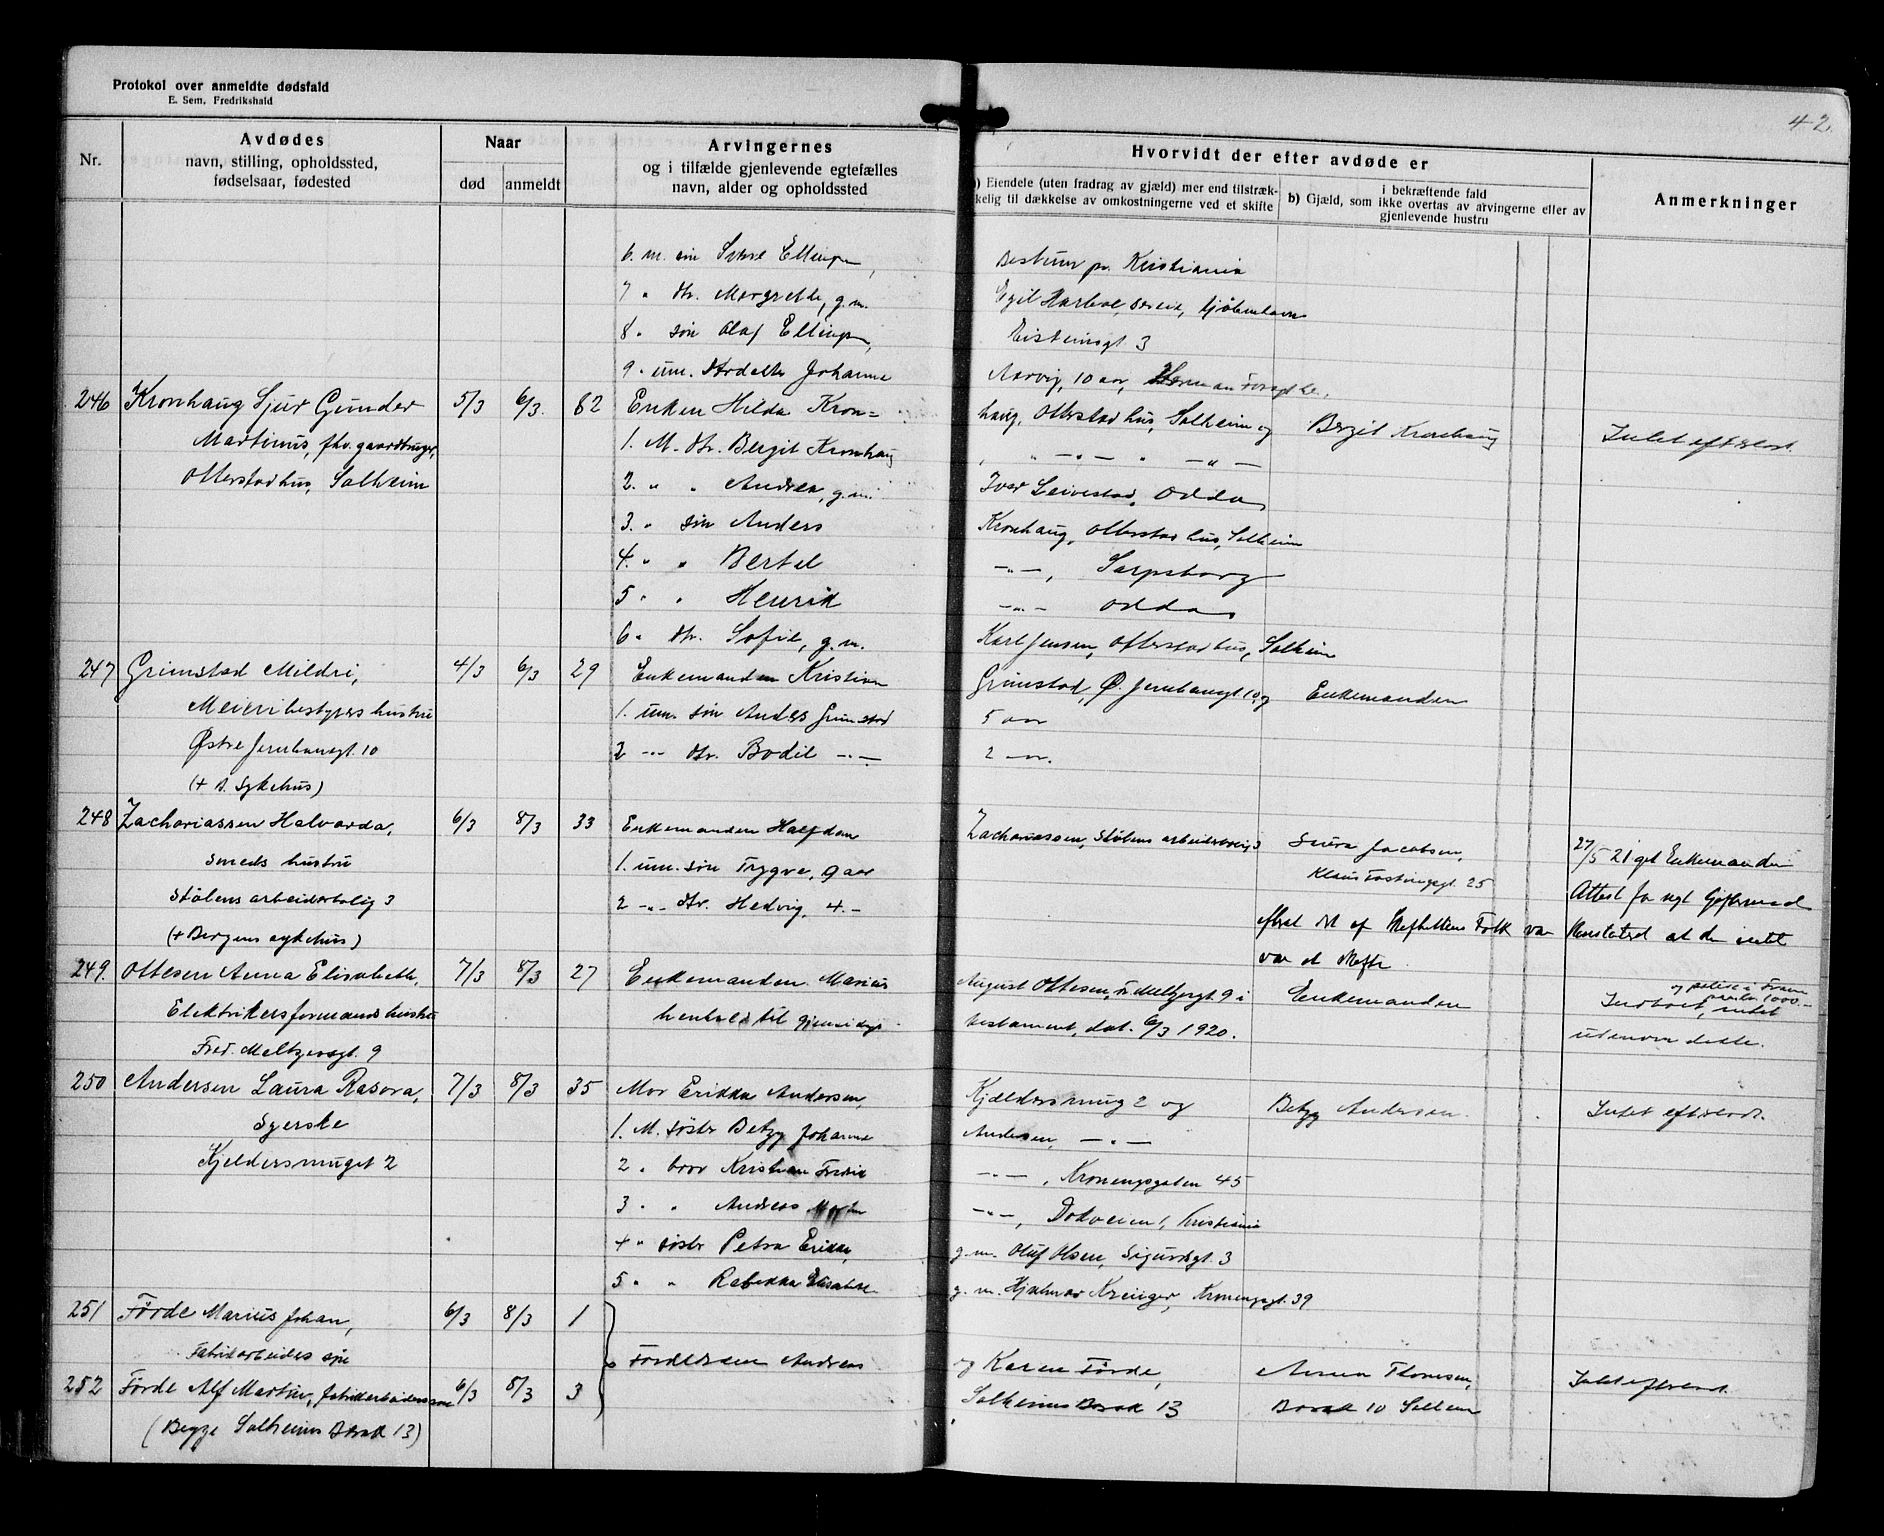 Protokol over anmeldte dødsfald
E. Sem, Fredrikshald
42.
Nr.
Avdødes
navn, stilling, opholdssted,
fødselsaar, fødested
Naar
død
anmeldt
Arvingernes
og i tilfælde gjenlevende egtefælles
navn, alder og opholdssted
Hvorvidt der efter avdøde er
a) Eiendele (uten fradrag av gjæld) mer end tilstræk-
kelig til dækkelse av omkostningerne ved et skifte
b) Gjæld, som i bekræftende fald
ikke overtas av arvingerne eller av
gjenlevende hustru
Anmerkninger
6. m. søn Ellingsen, Bestum pr. Kristiania
7 " dtr. Margrethe, g.m. Egil Kjøbenhavn
8 " søn Olaf Ellingsen, Eisteinsgt. 3
9 " um. Johanne Aarvig, 10 aar,
246 Kronhaug Sjur Gunder 5/3 6/3. 82 Enken Hilda Kron= haug, Otterstadhus, Solheim og Bergit Kronhaug Intet efterlatt.
Martinus, fhv. gaardbruger, 1. M. dtr. Bergit Kronhaug, " — " — " — " —
Otterstadhus, Solheim 2. " " Andrea, g.m. Ivar Leivestad, Odda
3. " søn Anders Kronhaug, Otterstadhus, Solheim
4. " " Bertel — " —, Sarpsborg
5 " " Henrik — " — Odda
6 " dtr. Sofie, g.m. Karl Jensen, Otterstadhus, Solheim
247 Grimstad Mildri, 4/3 6/3 29 Enkemanden Kristian Grimstad, Ø. Jernbanegt. 10, og Enkemanden
Meieribestyrers hustru 1. um. søn Anders Grimstad 5 aar
Østre Jernbanegt. 10 2 — " — dtr. Bodil — " — 2 — aar.
(+ Sykehus)
248 Zachariassen Halvarda, 6/3 8/3 33 Enkemanden Halfdan Zachariassen, Stølens arbeiderbolig 3 Jacobsen, 27/5 21 get Enkemanden
smeds hustru 1. um. søn Trygve, 9 aar Klaus Fastingsgt. 25 Attest for nyt Giftermaal
Stølens arbeiderbolig 3 2 — " — dtr. Hedvig, 4. —
(+ Bergens sykehus) at der intet
var at skifte.
249. Ottesen Anna Elisabeth, 7/3 8/3 27 Enkemanden Marius August Ottesen, Fr. Meltzersgt. 9 i Enkemanden Indbo, intet
Elektrikerformands hustru henhold til gjensidig testament, dat. 6/3 1920. utenom dette.
Fred. Meltzersgt. 9
250 Andersen Laura Rasora, 7/3 8/3 35 Mor Erikka Andersen, Kjeldersmug 2 og Betzy Andersen. Intet efterlatt.
Syerske 1. M. søster Betzy Johanne Andersen, — " —
Kjeldersmuget 2 2 " bror Kristian Fredrik — " —, Kronengsgaten 45
3 " " Andreas — " —, Dokveien 1, Kristiania
4 " søster Petra Erikka, g.m. Oluf Olsen, Sigurdsgt. 3
5 " " Rebekka Elisabeth g.m. Hjalmar Kreuger, Kroneng gt. 39
251 Førde Marius Johan, 6/3 8/3 1
Fabrikarbeiders søn Andreas og Karen Førde, Anna Thomsen, Intet efterlatt.
252 Førde Alf Martin, fabrikarbeiders søn 6/3 8/3 3 Solheims Brak 13 Brak 10 Solheim
(Begge Solheims Brak 13)